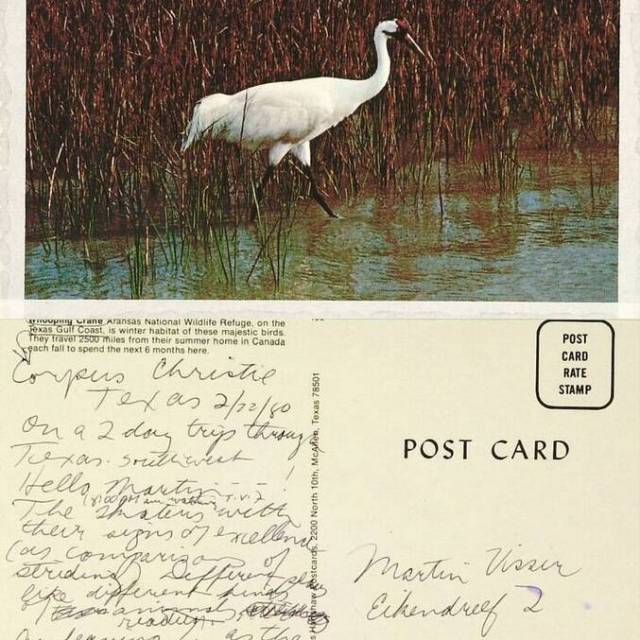 Whooping Crane Aransas National Wildlife Refuge, on the
Texas Gulf Coast, is winter habitat of these majestic birds.
They travel 2500 miles from their summer home in Canada
each fall to spend the next 6 months here.
Corpus Christie
Texas 2/22/80
on a 2 day trip through
Texas. southwest
Hello Martin !
The skaters with
their signs of excellence
(as comparison of
striding) Different
like different kinds
of animals
readily
as the
Postcards, 2200 North 10th, McAllen, Texas 78501
POST
CARD
RATE
STAMP
POST CARD
Martin Visser
Eikendreef 2